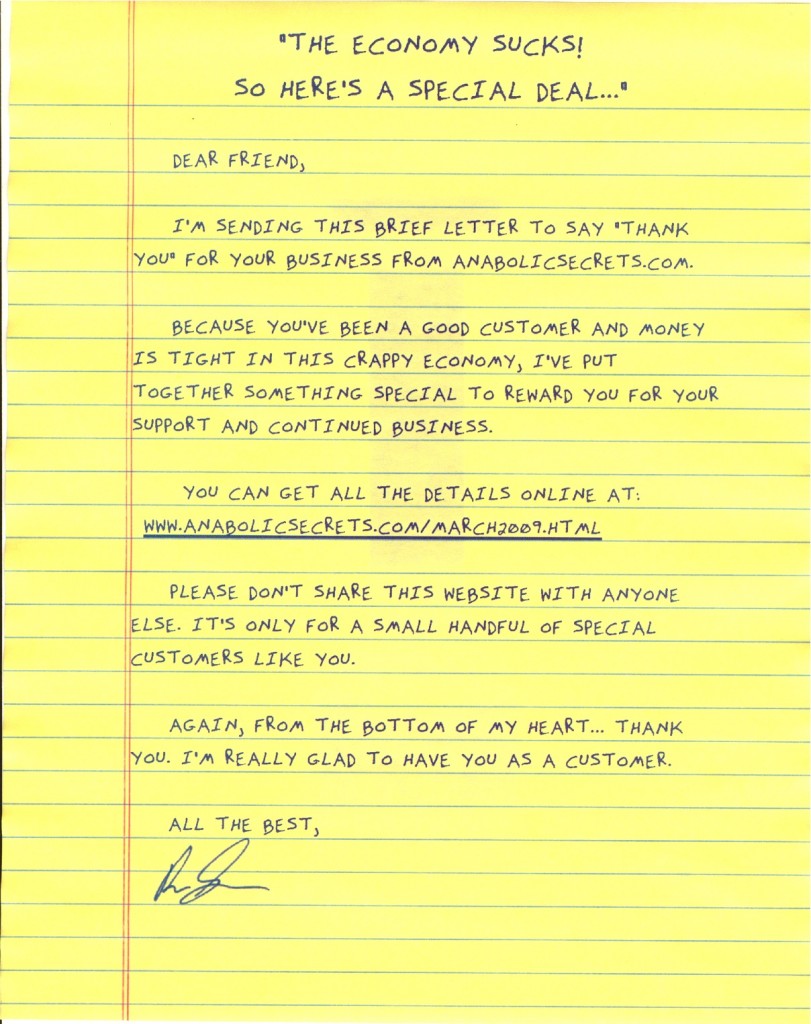 "THE ECONOMY SUCKS!
SO HERE'S A SPECIAL DEAL..."
DEAR FRIEND,
I'M SENDING THIS BRIEF LETTER TO SAY "THANK
YOU" FOR YOUR BUSINESS FROM ANABOLICSECRETS.COM.
BECAUSE YOU'VE BEEN A GOOD CUSTOMER AND MONEY
IS TIGHT IN THIS CRAPPY ECONOMY, I'VE PUT
TOGETHER SOMETHING SPECIAL TO REWARD YOU FOR YOUR
SUPPORT AND CONTINUED BUSINESS.
YOU CAN GET ALL THE DETAILS ONLINE AT:
WWW.ANABOLICSECRETS.COM/MARCH2009.HTML
PLEASE DON'T SHARE THIS WEBSITE WITH ANYONE
ELSE. IT'S ONLY FOR A SMALL HANDFUL OF SPECIAL
CUSTOMERS LIKE YOU.
AGAIN, FROM THE BOTTOM OF MY HEART... THANK
YOU. I'M REALLY GLAD TO HAVE YOU AS A CUSTOMER.
ALL THE BEST,